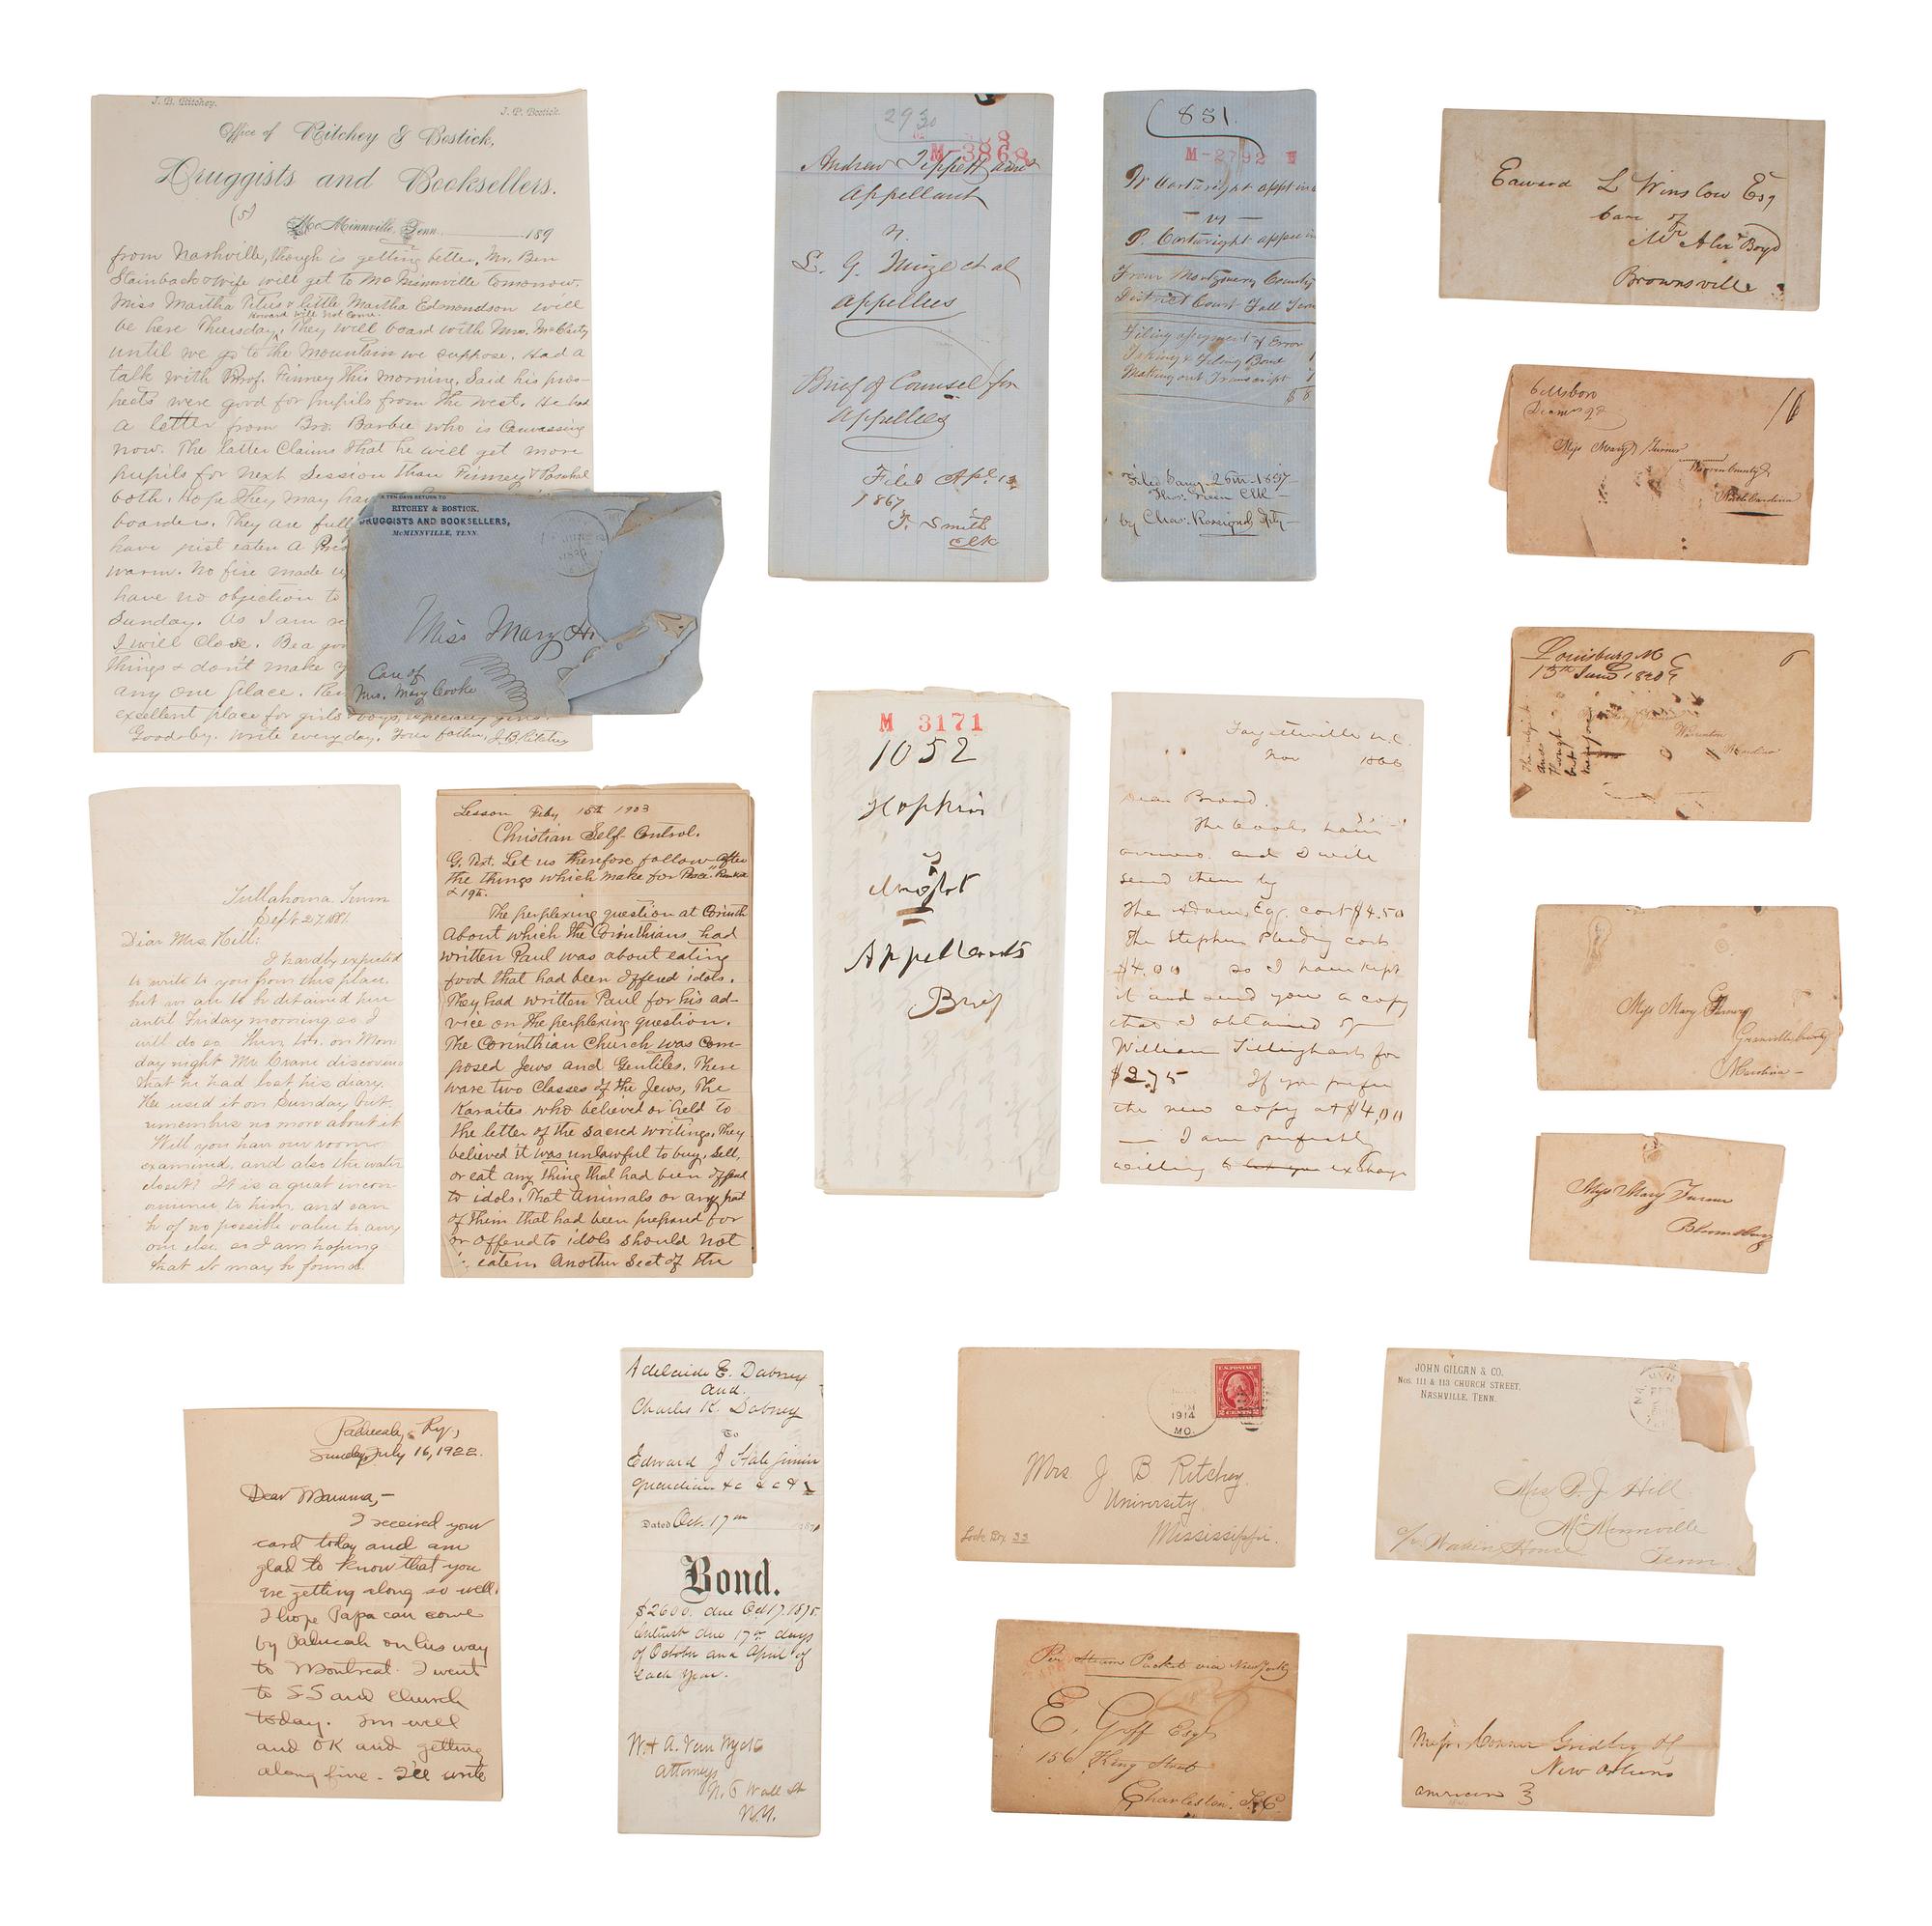 J. B. Ritchey.
J. P. Bostick.
Office of Ritchey & Bostick,
Druggists and Booksellers.
(5)
McMinnville, Tenn. 189
from Nashville, though is getting better, Mr. Ben
Stainback & wife will get to McMinnville tomorrow.
Miss Martha Titus & little Martha Edmondson will
Howard will not come.
be here Thursday. They will board with Mrs.
until we go to the Mountain we suppose. Had a
talk with Prof. Finney this morning. Said his pros-
pects were good for pupils from the west. He had
a letter from Bro. Barbie who is Canvassing
now. The latter Claims that he will get more
pupils for next Session than Finney & Paschal
both. Hope they may hav
boarders. They are full
have just eaten a
warm. No fire made u
have no objection to
Sunday. As I am
I will Close. Be a goo
things & don't make y
any one place.
excellent place for girls & boys, especially girls.
Goodby. Write every day. Your father, J B Ritchey
N TEN DAYS RETURN TO
RITCHEY & BOSTICK,
RUGGISTS AND BOOKSELLERS,
McMINNVILLE, TENN.
Miss Mary
Care of
Mrs. Mary Cooke
293
M-3868
Andrew Tippett
Appellant
v.
L. G. Mize et al
Appellees
Brief of Counsel for
Appellees
Filed Apl. 13
1867
Smith
Clk
851.
M-2792
W Cartwright appt
vs
P. Cartwright appee
From Montgomery County
District Court Fall Term
Filing assignment of Error
Taking & filing Bond
Making out Transcript
Filed Jany 26th 1857
Thos. Green Clk
by Chas. Rossignol Dty
Edward L Winslow Esq
Care of
Mr Alexr Boyd
Brownsville
Miss Mary Turner
Warren County
North Carolina
Louisburg N C
13th June 1820
Warrenton
N Carolina
Miss Mary Turner
Granville County
N Carolina
Miss Mary Turner
Bloomsbury
Tullahoma Tenn
Sept 27 1881
Dear Mrs Hill:
I hardly expected
to write to you from this place
but we are to be detained here
until Friday morning so I
will do so then, too. on Mon
day night Mr Crane discovered
that he had lost his diary.
He used it on Sunday but
remembers no more about it
Will you have our rooms
examined, and also the water
closet? It is a great incon-
venience to him and can
be of no possible value to any
one else so I am hoping
that it may be found.
Lesson Feby 15th 1903
Christian Self-Control.
G. Text. Let us therefore follow after
the things which make for Peace. Romans
& 19th.
The perplexing question at Corinth
About which the Corinthians had
written Paul was about eating
food that had been Offered idols.
They had written Paul for his ad-
vice on the perplexing question.
The Corinthian Church was Com-
posed Jews and Gentiles. There
ware two Classes of the Jews, The
Karaites who believed or held to
the letter of the sacred writings. They
believed it was unlawful to buy, sell,
or eat any thing that had been Offered
to idols. That Animals or any part
of them that had been prepared for
or offered to idols should not
eaten. Another Sect of the
M 3171
1052
Hopkins
v
Wright
Appellants
Brief
Fayetteville N.C.
Nov 1866
Dear Brand.
The books have
arrived and I will
send them by
The Adams Eq. cost $4.50
The Stephen Pleading costs
$4.00 so I have kept
it and send you a copy
that I obtained of
William Tillinghast for
$2.75 If you prefer
the new copy at $4.00
— I am perfectly
willing to exchange
Paducah, Ky,
Sunday July 16, 1922.
Dear Mamma,-
I received your
card today and am
glad to know that you
are getting along so well.
I hope Papa can come
by Paducah on his way
to Montreat. I went
to S S and church
today. I'm well
and OK and getting
along fine. I'll write
Adelaide E. Dabney
and
Charles K. Dabney
To
Edward J Hale Junior
guardian &c &c &c
Dated Oct. 17th
Bond.
$2600. due Oct 17. 1875.
Interest due 17th days
of October and April of
each Year.
W. & A. Van Wyck
Attorneys
N. 6 Wall St
N.Y.
U.S. POSTAGE
2 CENTS 2
1914
MO.
Mrs. J B Ritchey.
University
Mississippi.
Lock Box 33
JOHN GILGAN & CO.
Nos. 111 & 113 CHURCH STREET,
NASHVILLE, TENN.
Mrs P. J. Hill
McMinnville
c/o Warren House
Tenn.
Per Steam Packet via New York
E. Goff Esqr
156 King Street
Charleston. S. C.
Messrs. Conner Gridley &
New Orleans
American 3